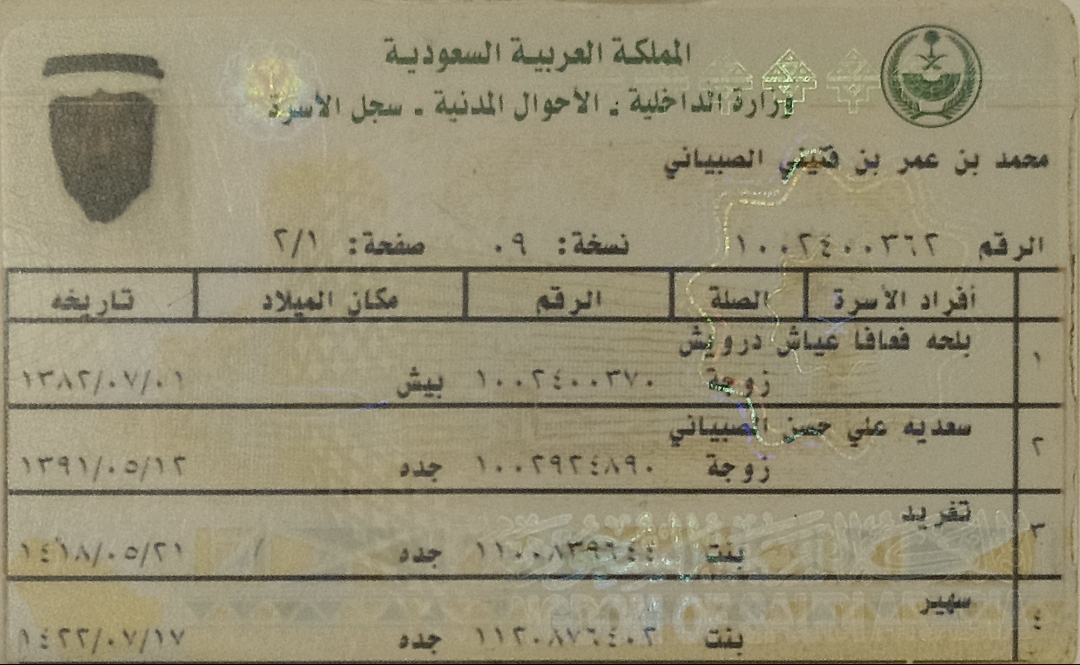 المملكة العربية السعودية
وزارة الداخلية . الأحوال المدنية . سجل الأسرة
محمد بن عمر بن فتيني الصبياني
الرقم ١٠٠٢٤٠٠٣٦٢ نسخة: ٠٩ صفحة: ٢/١
أفراد الأسرة الصلة الرقم مكان الميلاد تاريخه
١ بلحه فعافا عياش درويش
زوجة ١٠٠٢٤٠٠٣٧٠ بيش ١٣٨٢/٠٧/٠١
٢ سعديه علي حسن الصبياني
زوجة ١٠٠٢٩٢٤٨٩٠ جده ١٣٩١/٠٥/١٢
٣ تغريد
بنت ١١٠٠٨٣٩٦٤٤ جده ١٤١٨/٠٥/٢١
٤ سهير
بنت ١١٢٠٨٧٦٤٠٢ جده ١٤٢٢/٠٧/١٧